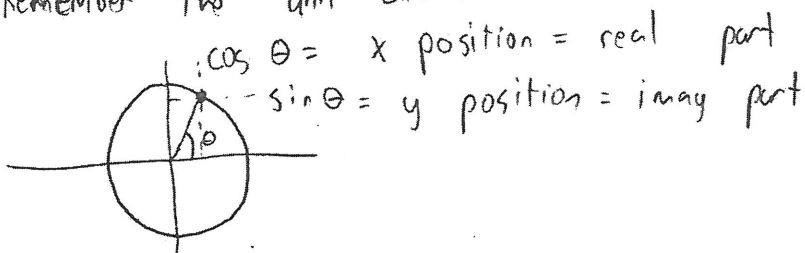 Remember The unit
cos θ = x position = real part
sin θ = y position = imag part
θ